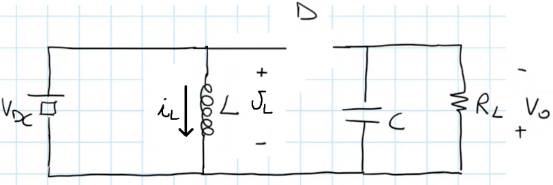 D
+
-
V_DC
i_L
L
v_L
C
R_L
V_o
-
+